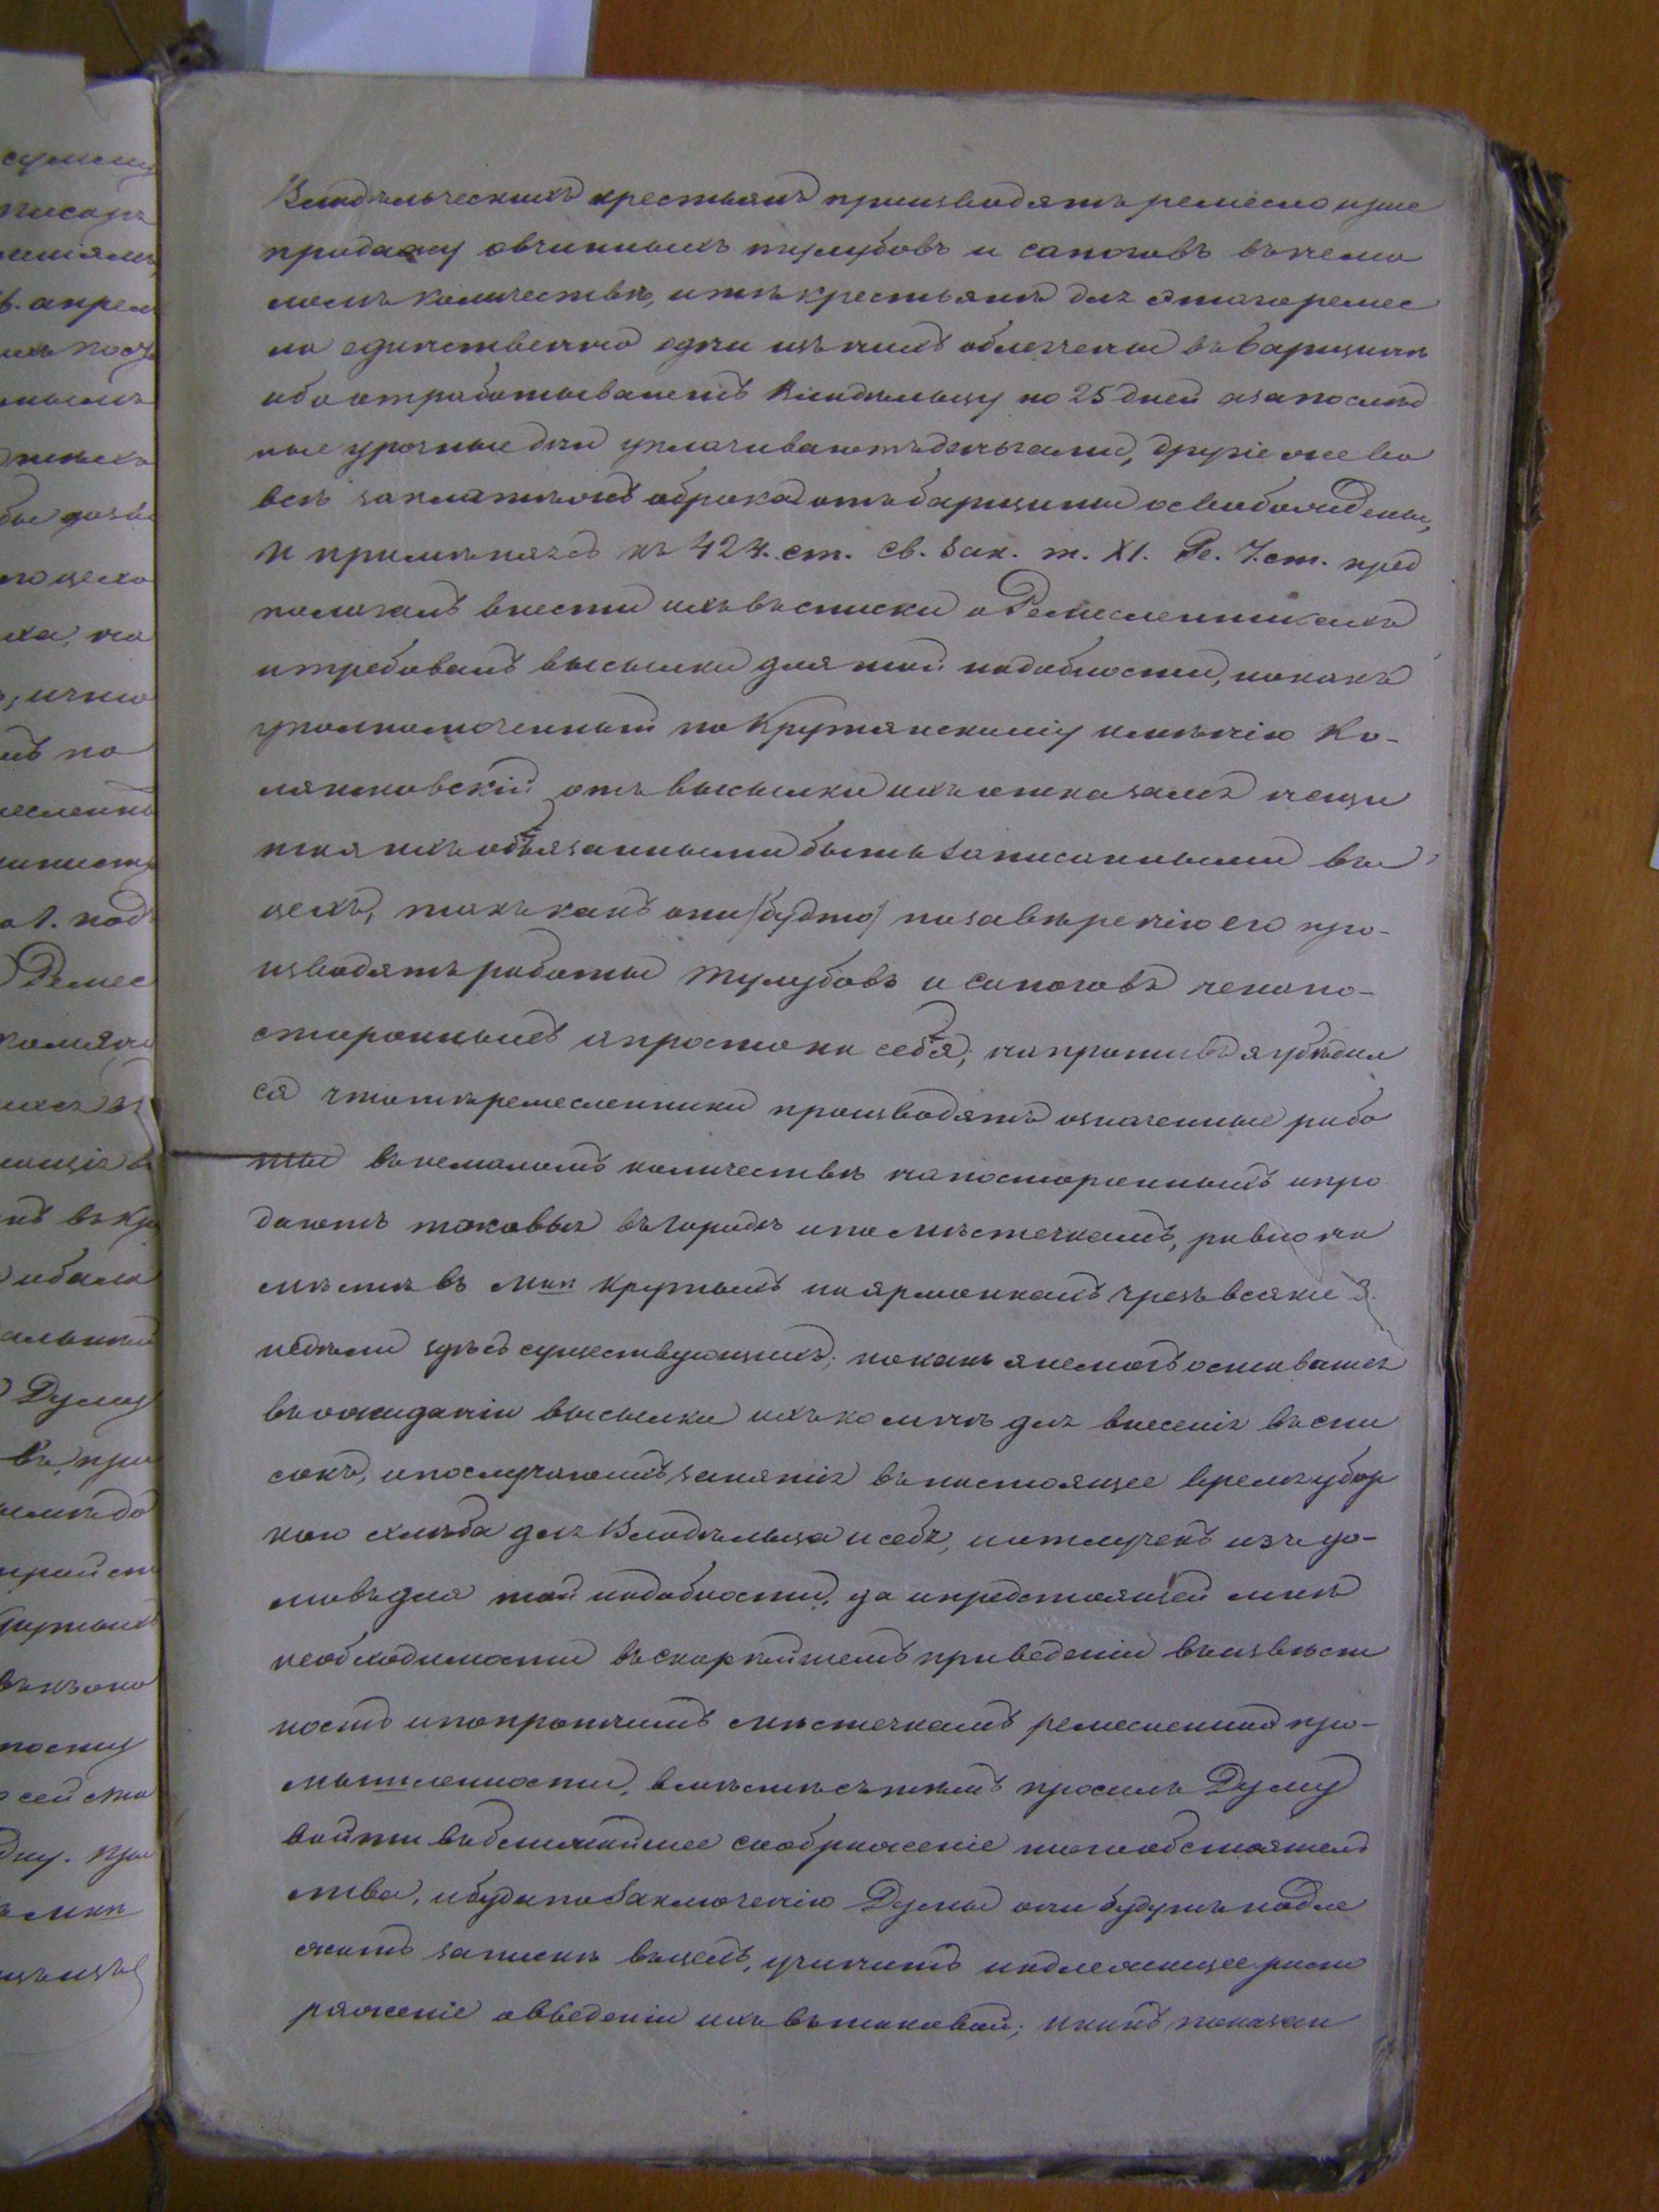 Владѣльческихъ крестьянъ производятъ ремесло и уже
продажу овчинныхъ тулубовъ и сапоговъ въ нема
ломъ количествѣ, и тѣ крестьяне для этаго ремес
ла единственно одни изъ нихъ облегчены въ барщинѣ
ибо отработываютъ Владѣльцу по 25 дней а за послѣд
ные урочные дни уплачиваютъ деньгами, другіе же во
все заплатѣжемъ оброка отъ барщины освобождены,
И примѣняясь къ 424. ст. Св. Зак. т. XI. Ре. 7. ст. пред
полагалъ внести ихъ въ списки о Ремесленникахъ
и требовалъ высылки для той надобности, но какъ
уполномоченный по Крутянскому имѣнію Ко-
лянковскій отъ высылки ихъ отказался несчи
тая ихъ обязанными быть записанными въ
цехъ, такъ какъ они (будто) по завѣренію его про-
изводятъ работы тулубовъ и сапоговъ не на по-
стороннымъ а просто на себя; напротивъ я убѣдил
ся что тѣ ремесленники производятъ означенные рабо
ты въ немаломъ количествѣ на постороннымъ и про
даютъ таковыя въ городѣ и по мѣстечкамъ, равно на
мѣстѣ въ Мкѣ Крутыхъ по ярмонкамъ чрезъ всякіе 3.
недѣли здѣсь существующихъ; но какъ я немогъ оставаться
въ ожиданіи высылки ихъ ко мнѣ для внесенія въ спи
сокъ, и по случаю занятія въ настоящее время убор
кою хлѣба для Владѣльца и себѣ, и отлучекъ изъ до-
мовъ для той надобности, да и предстоящей мнѣ
необходимости въ скорѣйшемъ приведеніи въ извѣст
ность и по прочимъ мѣстечкамъ ремесленной про-
мышленности, вмѣстѣ съ тѣмъ просилъ Думу
войти въ ближайшее соображеніе того обстоятель
ства, и буде по Заключенію Думы они будутъ подле
жать запискѣ въ цехъ, учинить надлежащее распо
ряженіе о введеніи ихъ въ таковой; и какъ показан